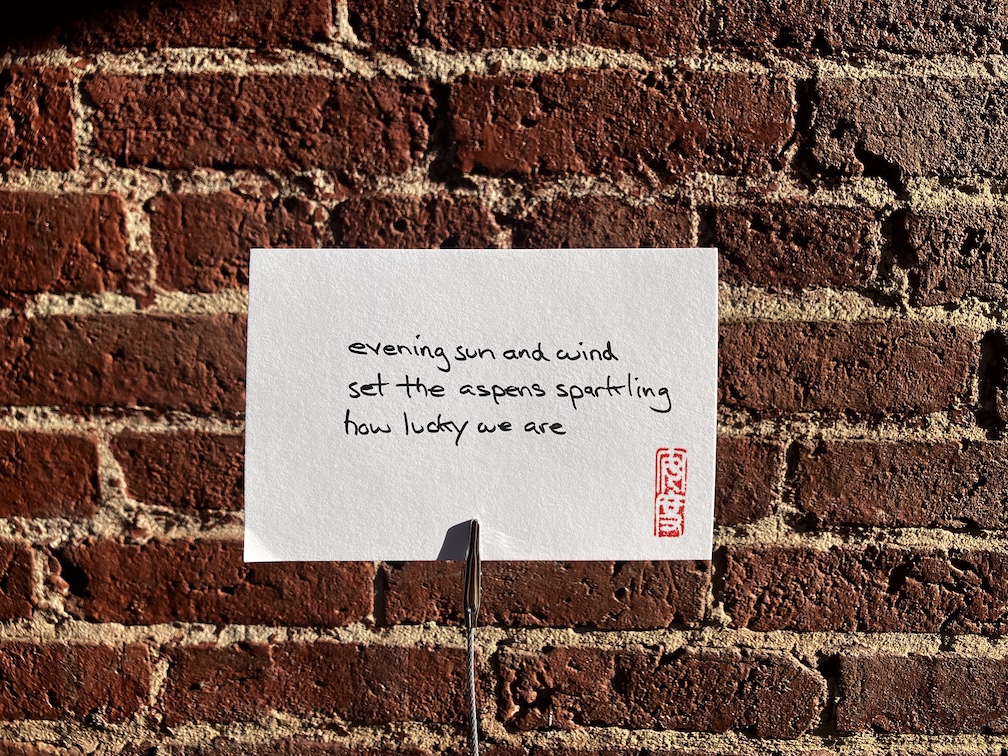 evening sun and wind
set the aspens sparkling
how lucky we are